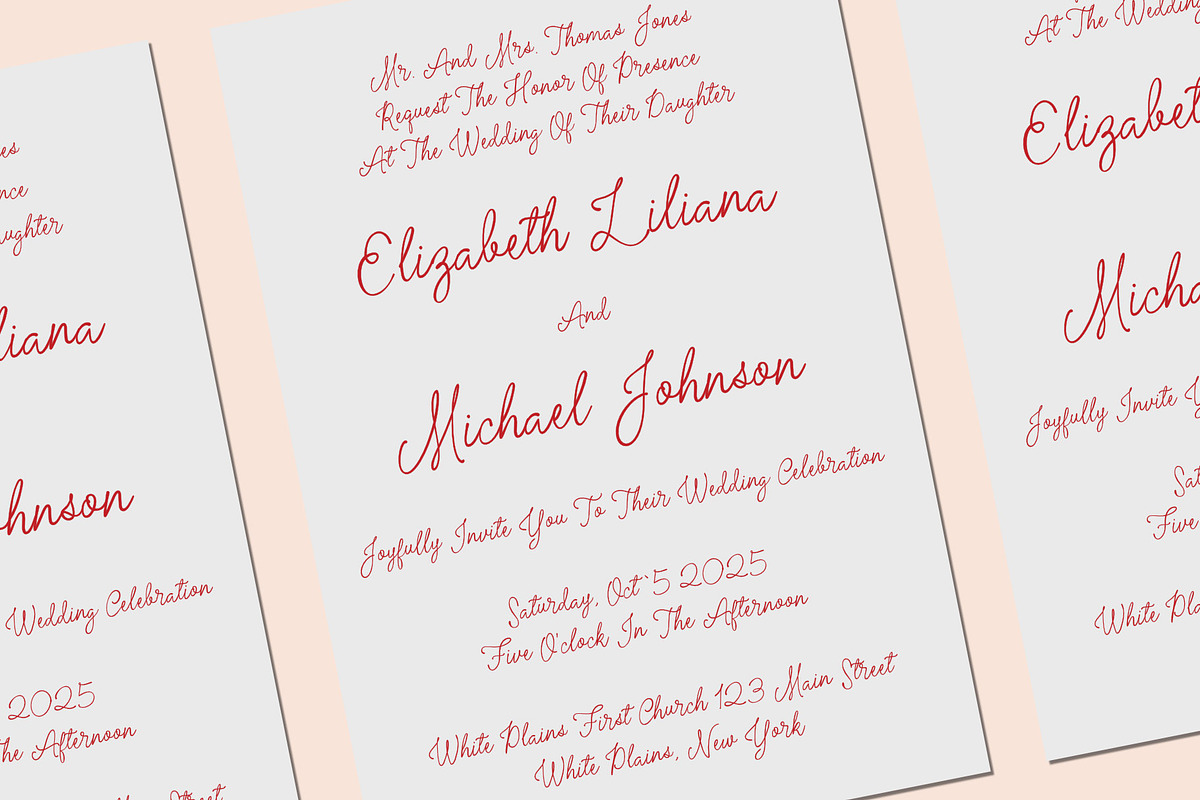 Mr. And Mrs. Thomas Jones
Request The Honor Of Presence
At The Wedding Of Their Daughter
Elizabeth Liliana
And
Michael Johnson
Joyfully Invite You To Their Wedding Celebration
Saturday, Oct`5 2025
Five O'clock In The Afternoon
White Plains First Church 123 Main Street
White Plains, New York
ughter
liana
hnson
Wedding Celebration
2025
The Afternoon
Street
At The Wedding
Elizabet
Micha
Joyfully Invite Y
Sat
Five
White Pla